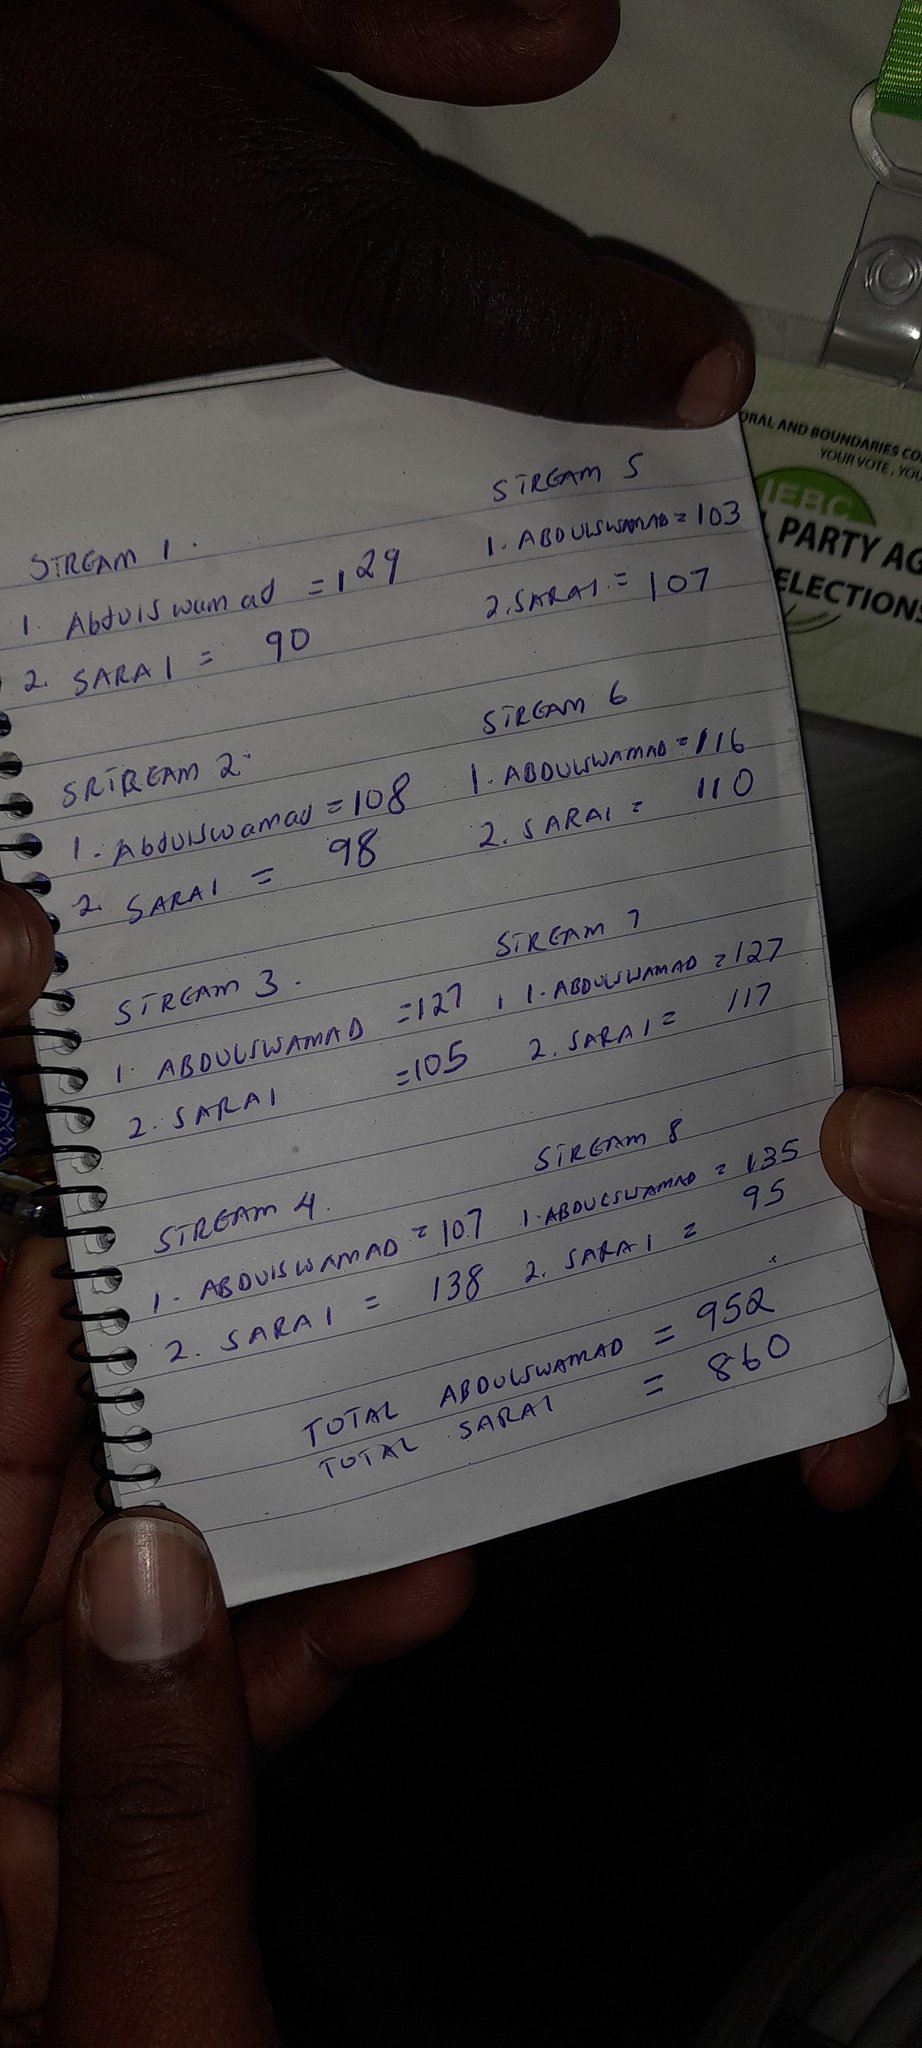 STREAM 1.
1. Abdulswamad = 129
2. SARAI = 90
SRTREAM 2.
1. Abdulswamad = 108
2. SARAI = 98
STREAM 3.
1. ABDULSWAMAD = 127
2. SARAI = 105
STREAM 4.
1. ABDULSWAMAD = 107
2. SARAI = 138
STREAM 5
1. ABDULSWAMAD = 103
2. SARAI = 107
STREAM 6
1. ABDULSWAMAD = 116
2. SARAI = 110
STREAM 7
1. ABDULSWAMAD = 127
2. SARAI = 117
STREAM 8
1. ABDULSWAMAD = 135
2. SARAI = 95
TOTAL ABDULSWAMAD = 952
TOTAL SARAI = 860
ORAL AND BOUNDARIES CO
YOUR VOTE, YOU
IEBC
PARTY AG
ELECTIONS